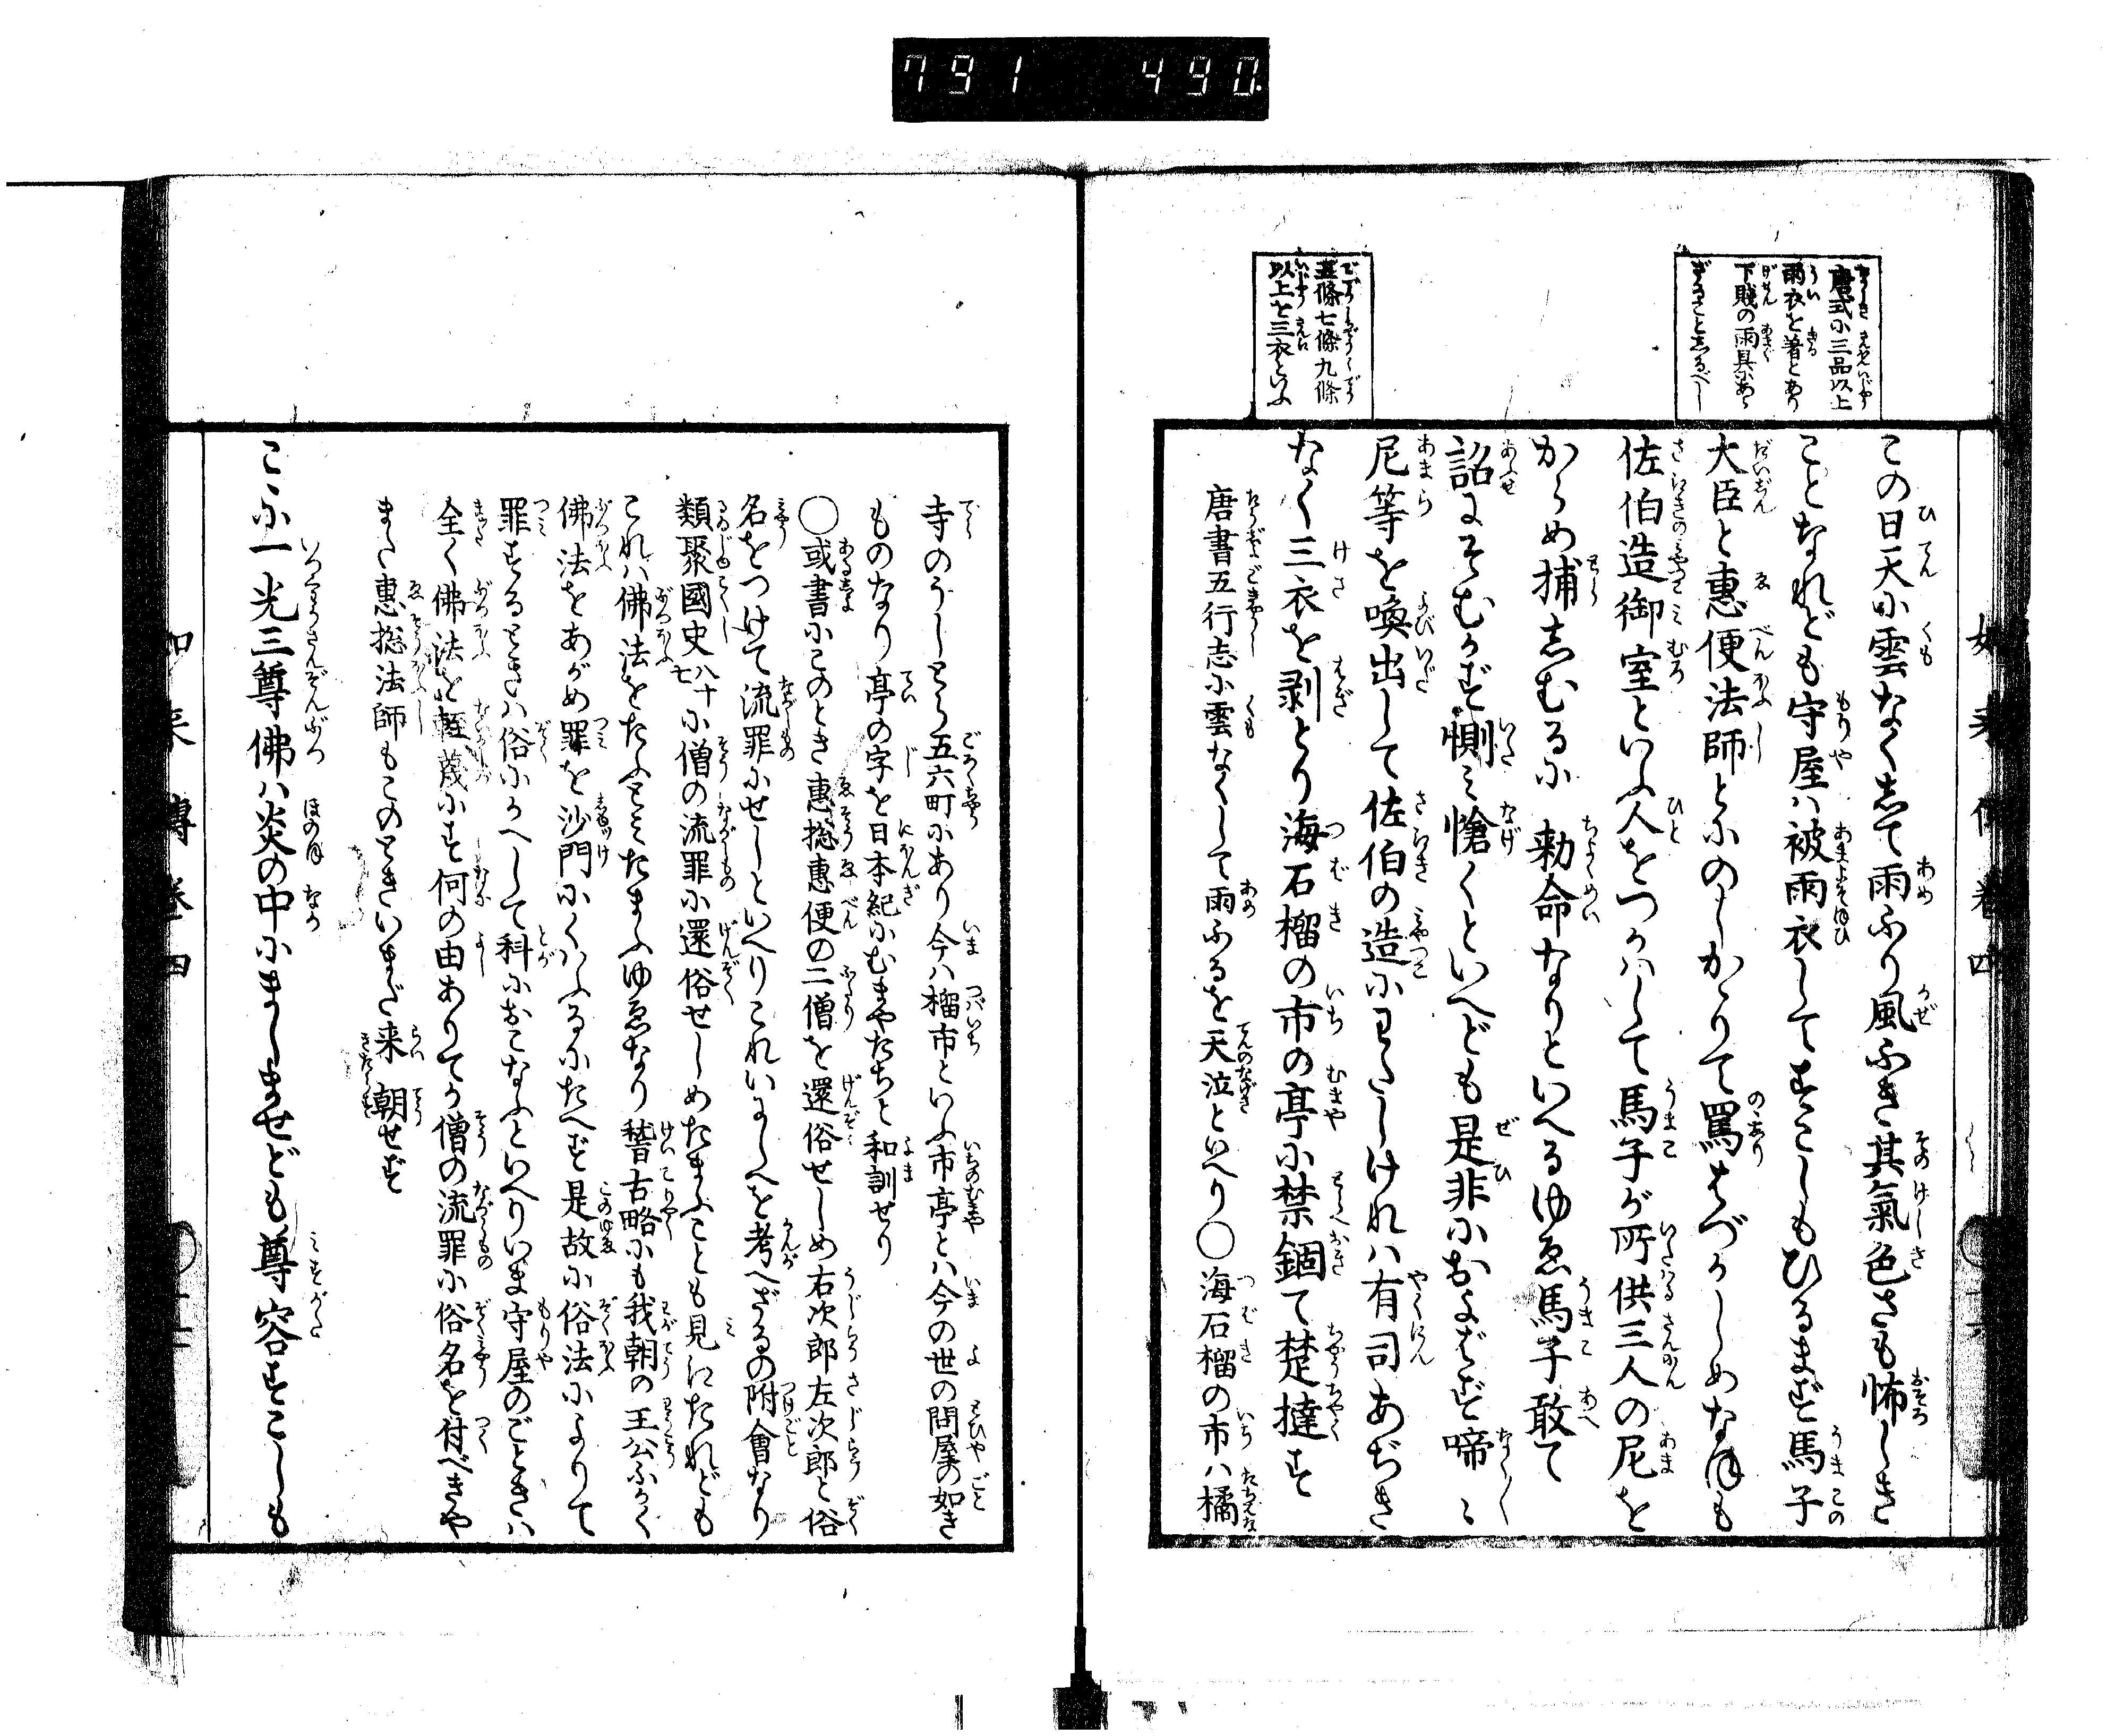 791 490.
唐式に三品以上
雨衣を着とあり
下賤の雨具にあら
ざることしるべし
五條七條九條
以上を三衣といふ
この日天に雲なくして雨ふり風ふき其氣色さも怖しき
ことなれども守屋は被雨衣してすこしもひるまず馬子
大臣と惠便法師とにのしかゝりて罵はづかしめなほも
佐伯造御室といふ人をつかはして馬子が所供三人の尼を
からめ捕しむるに 勅命なりといへるゆゑ馬子敢て
詔にそむかず惻み愴くといへども是非におよばず啼〻
尼等を喚出して佐伯の造にわたしければ有司あぢき
なく三衣を剥とり海石榴の市の亭に禁錮て楚撻す
唐書五行志に雲なくして雨ふるを天泣といへり○海石榴の市は橘
寺のうしとら五六町にあり今は榴市といふ市亭とは今の世の問屋の如き
ものなり亭の字を日本紀にむまやたちと和訓せり
○或書にこのとき惠揔惠便の二僧を還俗せしめ右次郎左次郎と俗
名をつけて流罪にせしといへりこれいにしへを考へざるの附會なり
類聚國史八十七に僧の流罪に還俗せしめたまふことも見えたれども
これは佛法をたふとみたまふゆゑなり 稽古略にも我朝の王公ふかく
佛法をあがめ罪を沙門にくはふるにたへず是故に俗法によりて
罪するときは俗にかへして科におこなふといへりいま守屋のごときは
全く佛法を輕蔑にす何の由ありてか僧の流罪に俗名を付べきや
また惠揔法師もこのときいまだ来朝せず
こゝに一光三尊佛は炎の中にましませども尊容すこしも
如来傳巻四